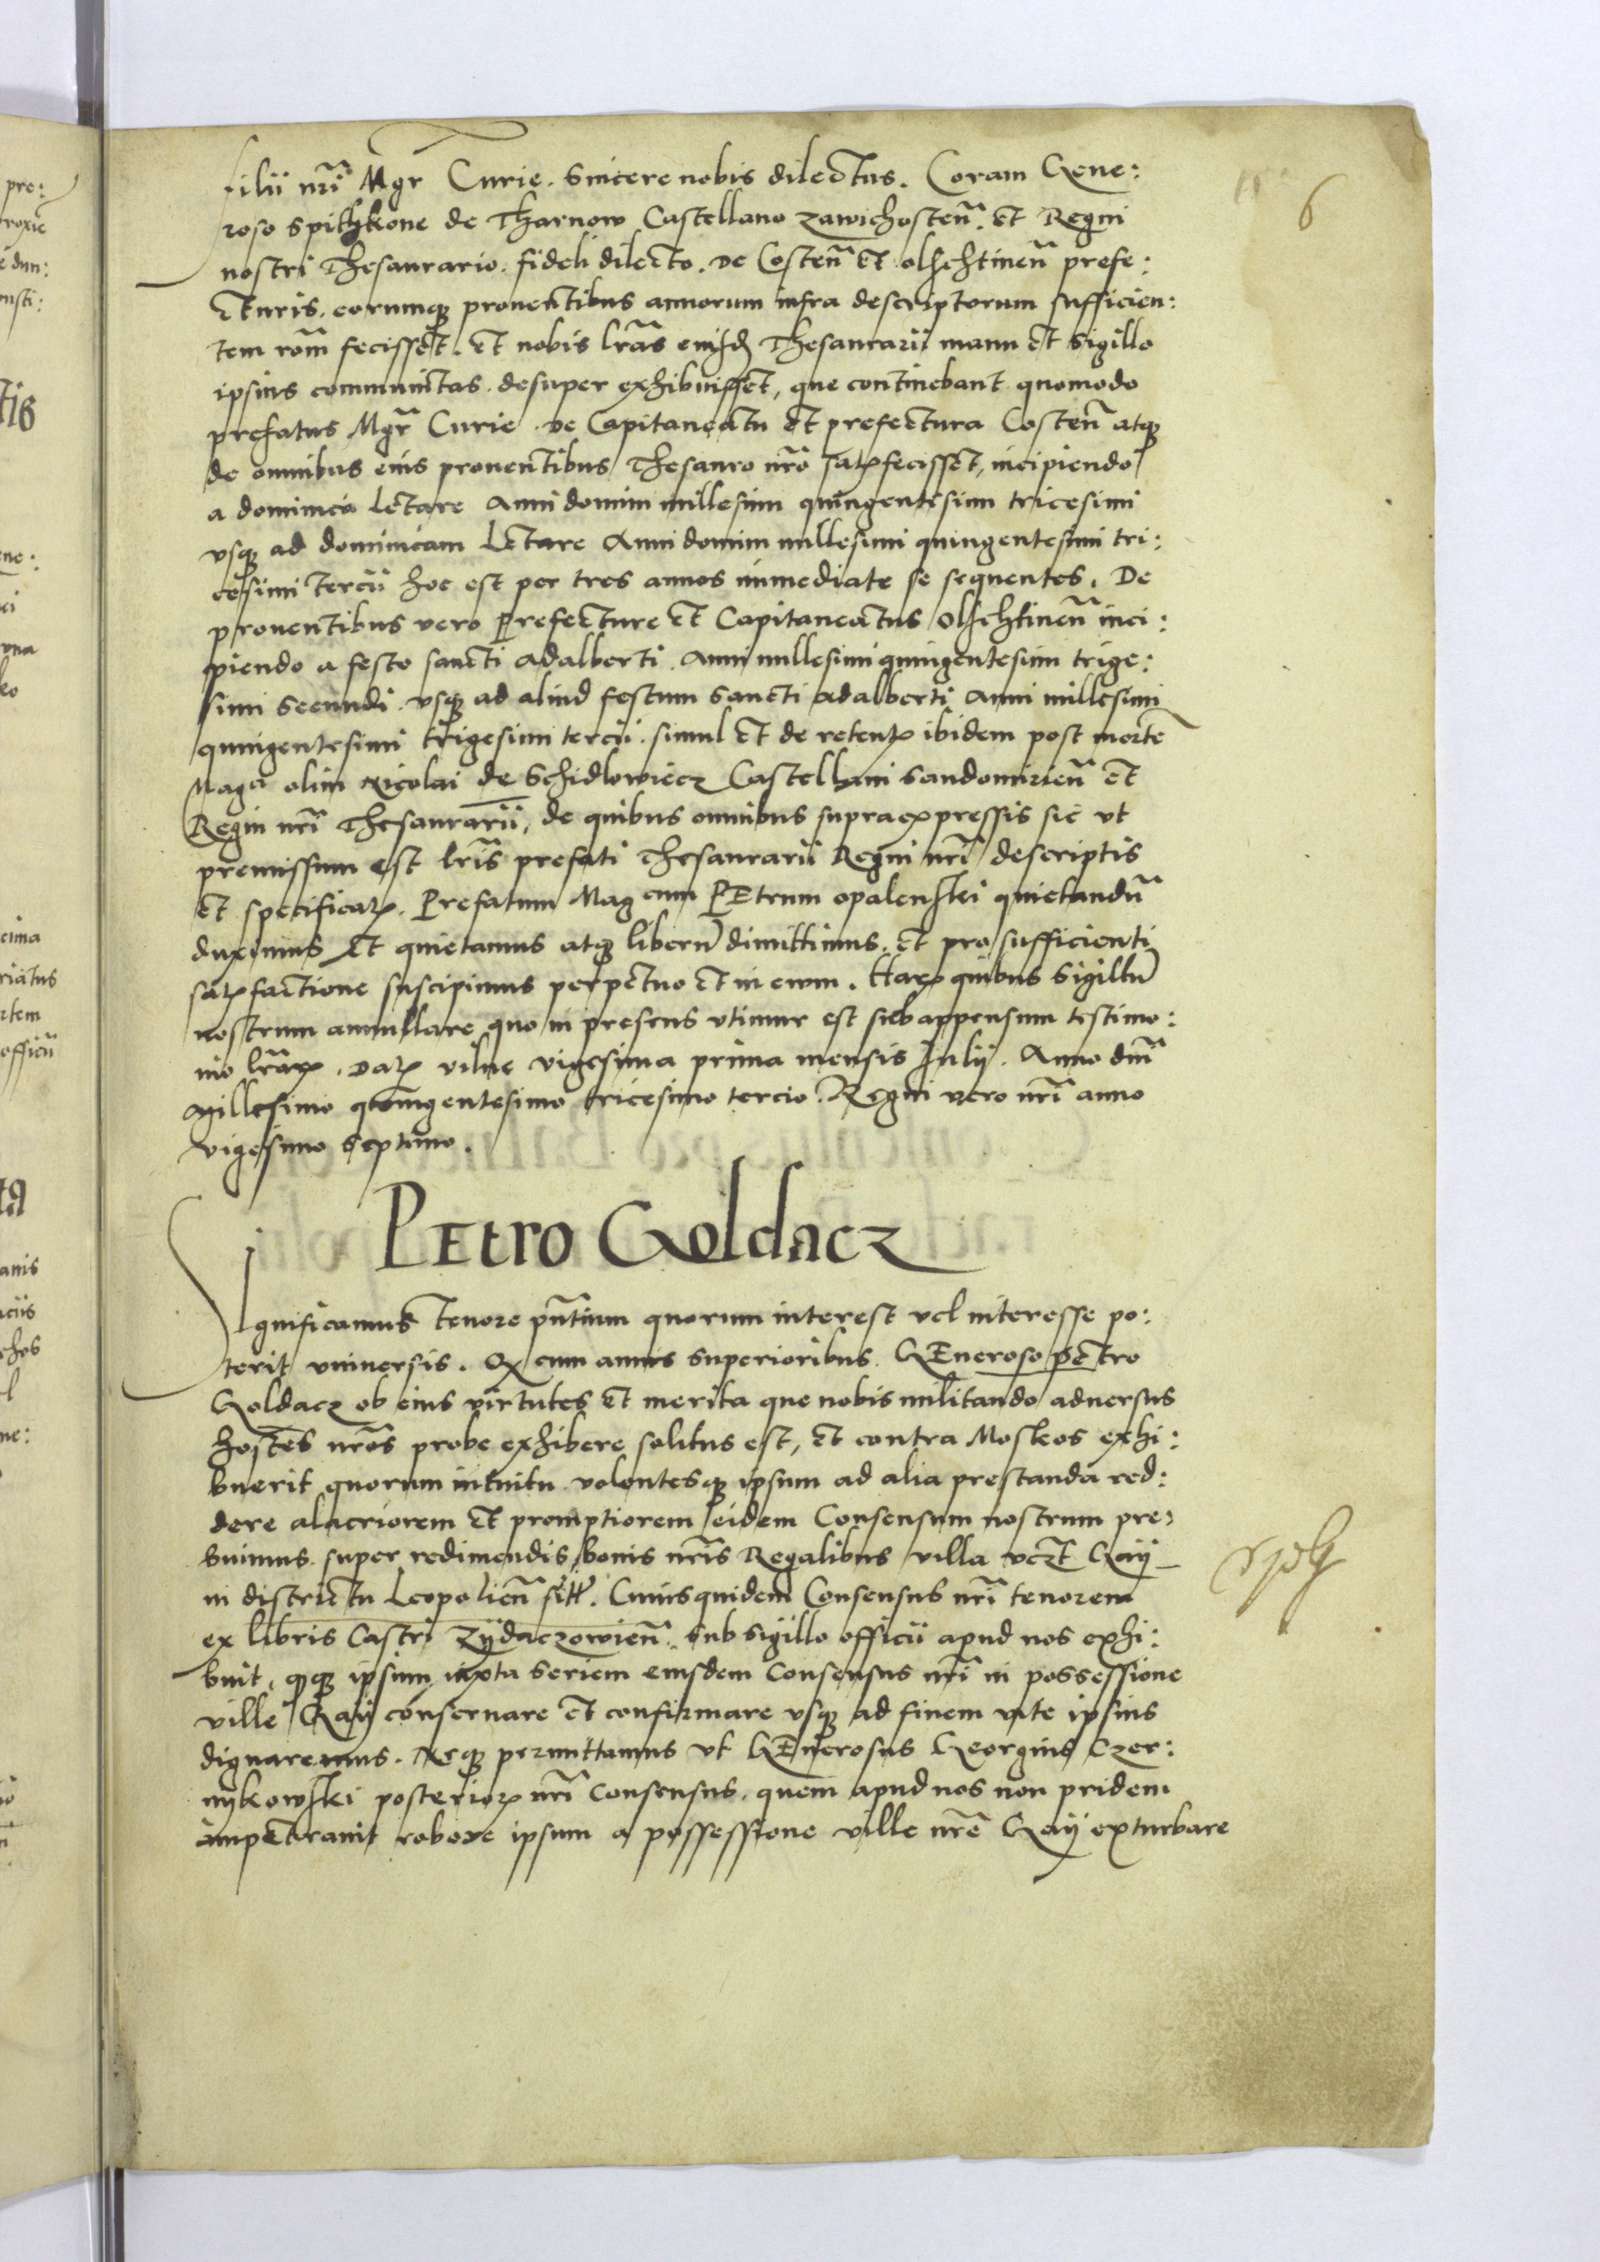 6
filii nrī Mgr Curie. Sincere nobis dilectus. Coram Gene:
roso Spithkone de Tharnow Castellano Zawichosten̄. et Regni
nostri Thesaurario. fideli dilecto. De Costen̄ et olschtinen̄ prefe:
cturis. eorumq₃ prouentibus annorum infra descriptorum sufficien:
tem rōm fecisset. et nobis lrās eiusd Thesaurarii manu et Sigillo
ipsius communitas. desuper exhibuisset, que continebant quomodo
prefatus Mgr̄ Curie. de Capitaneatu et prefectura Costen̄ atq₃
de omnibus eius prouentibus Thesauro nrō satꝭfecisset, incipiendo
a dominica letare Anni domini millesimi quingentesimi tricesimi
vsq₃ ad dominicam Letare Anni domini millesimi quingentesimi tri:
cesimi tercii hoc est per tres annos immediate se sequentes. De
prouentibus vero Prefecture et Capitaneatus Olschtinen̄ inci:
piendo a festo sancti Adalberti. Anni millesimi quingentesimi trige:
simi secundi. vsq₃ ad aliud festum Sancti Adalberti Anni millesimi
quingentesimi trigesimi tercii. simul et de retentꝭ ibidem post mortē
Magci olim Nicolai de Schidlowiecz Castellani Sandomirien̄ et
Regni nrī Thesaurarii, de quibus omnibus supraexpressis sic vt
premissum est lrīs prefati Thesaurarii Regni nrī descriptis
et specificatꝭ. Prefatum Magcum PEtrum opalenski quietandū
duximus et quietamus atq₃ liberū dimittimus. et pro sufficienti
satꝭfactione suscipimus perpetuo et in ewm. Harꝭ quibus Sigillū
nostrum annullare quo in presens vtimur est subappensum testimo:
nio lrārꝭ. Datꝭ vilne vigesima prima mensis Julij. Anno dnī
Millesimo quingentesimo tricesimo tercio. Regni vero nrī anno
vigesimo septimo.
PEtro Goldacz
Significamus tenore pn̄tium quorum interest vel interesse po:
terit vniuersis. Q cum annis superioribus GEneroso petro
Goldacz ob eius virtutes et merita que nobis militando aduersus
hostes nrōs probe exhibere solitus est, et contra Moskos exhi:
buerit quorum intuitu volentesq₃ ipsum ad alia prestanda red:
dere alacriorem et promptiorem eidem Consensum nostrum pre:
buimus super redimendis bonis nrīs Regalibus villa vczt Gay
in districtu Leopolien̄ sitt. Cuiusquidem Consensus nrī tenorem
ex libris Castri Zÿdaczowien̄. sub sigillo officii apud nos exhi:
buit. qq₃ ipsum iuxta seriem eiusdem Consensus nrī in possessione
ville Gaÿ conseruare et confirmare vsq₃ ad finem vite ipsius
dignaremus. Neq₃ permittamus vt GEnerosus Georgius Czer:
nykowski posteriorꝭ nrī Consensus. quem apud nos non pridem
impetrauit robore ipsum a possessione ville nrē Gaÿ exturbare